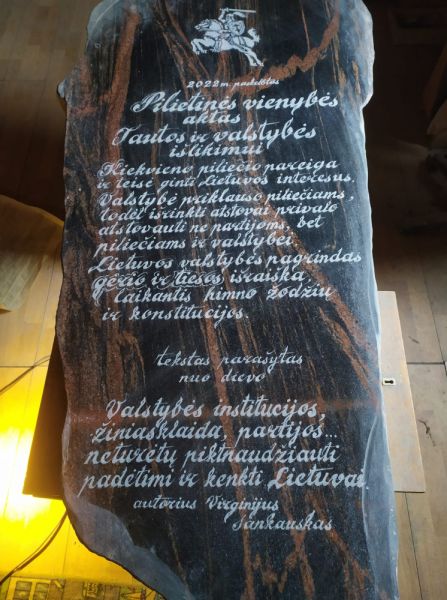 2022m. padėlotas
Pilietinės vienybės
aktas
Tautos ir valstybės
išlikimui
Kiekvieno piliečio pareiga
ir teisė ginti Lietuvos interesus.
Valstybė priklauso piliečiams,
todėl išrinkti atstovai privalo
atstovauti ne partijoms, bet
piliečiams ir valstybei.
Lietuvos valstybės pagrindas
gėrio ir tiesos išraiška,
laikantis himno žodžių
ir konstitucijos.
tekstas parašytas
nuo dievo
Valstybės institucijos,
žiniasklaida, partijos...
neturėtų piktnaudžiauti
padėtimi ir kenkti Lietuvai.
autorius Virginijus
Sankauskas